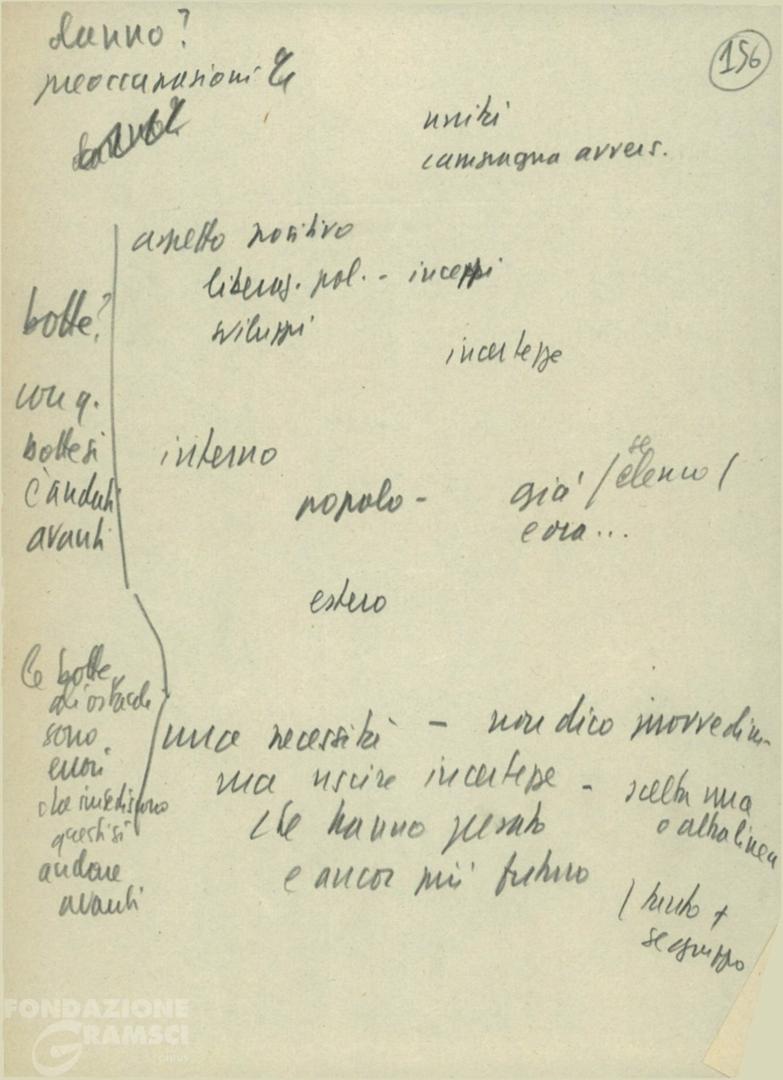 danno?
156
preoccupazioni
unità
campagna avvers.
aspetto positivo
liberaz. pol. - inceppi
sviluppi
botte?
incertezze
con q.
botte si
è andati
avanti
interno
popolo - già / se elenco /
e ora...
estero
le botte
gli ostacoli
sono
errori
che impediscono
questi si
andare
avanti
una necessità - non dico provvedim.
ma uscire incertezze - scelta una
che hanno pesato o altra linea
e ancor più futuro
( tanto +
se gruppo
FONDAZIONE
GRAMSCI